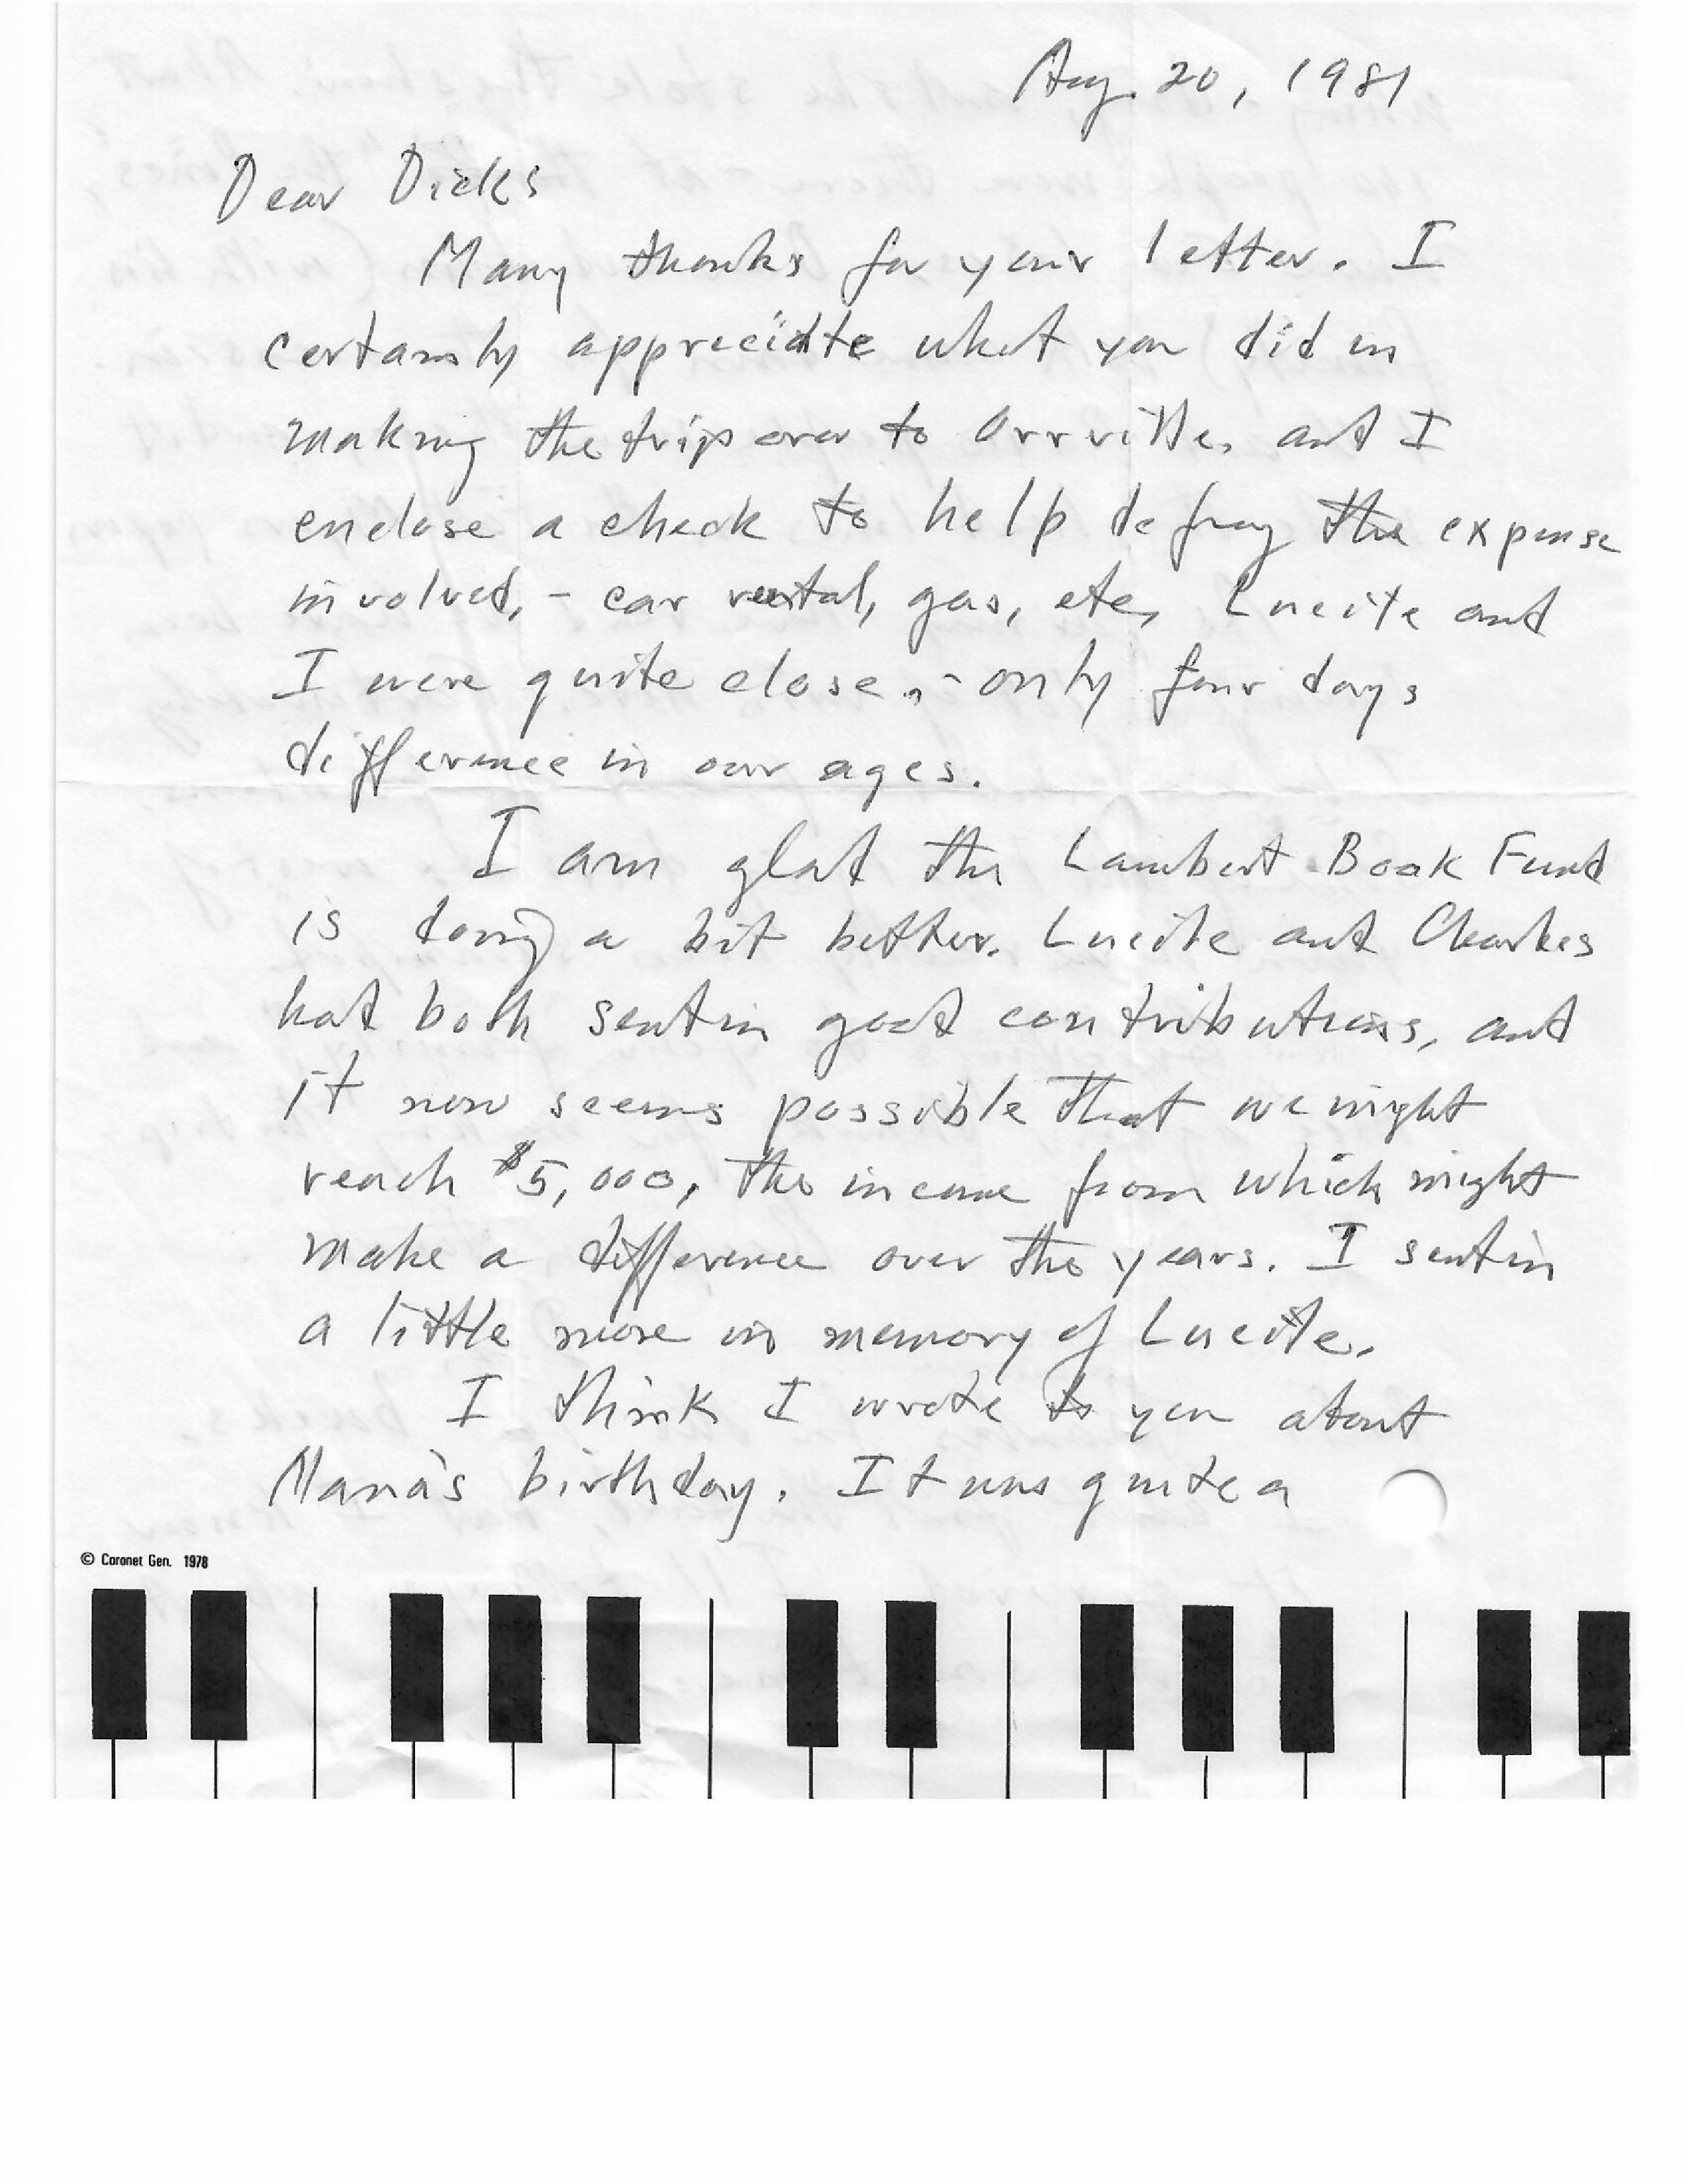 Aug. 20, 1981
Dear Dicks
Many thanks for your letter. I
certainly appreciate what you did in
making the trip over to Orrville, and I
enclose a check to help defray the expense
involved, - car rental, gas, etc. Lucile and
I were quite close, - only four days
difference in our ages.
I am glad the Lambert Book Fund
is doing a bit better. Lucile and Charles
had both sent in good contributions, and
it now seems possible that we might
reach $5,000, the income from which might
make a difference over the years. I sent in
a little more in memory of Lucile.
I think I wrote to you about
Maria's birthday. It was quite a
© Coronet Gen. 1978